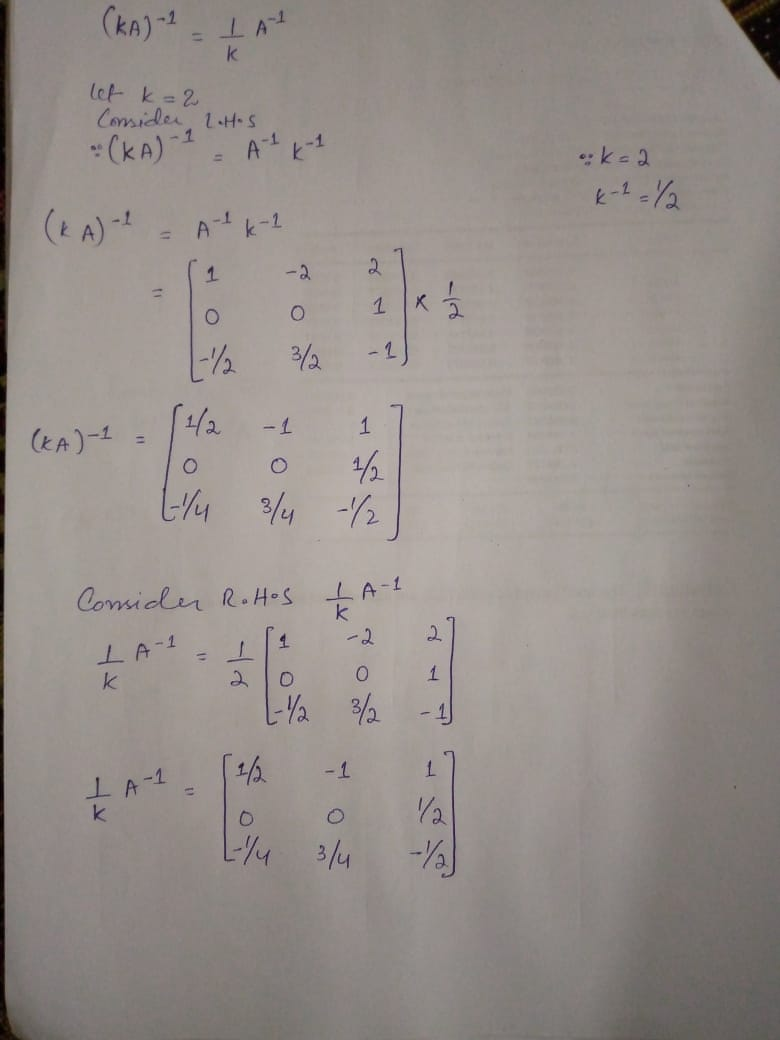 (kA)⁻¹ = 1/k A⁻¹
Let k = 2
Consider L.H.S
∵ (kA)⁻¹ = A⁻¹ k⁻¹
∵ k = 2
k⁻¹ = 1/2
(kA)⁻¹ = A⁻¹ k⁻¹
= [1 -2 2
0 0 1
-1/2 3/2 -1] × 1/2
(kA)⁻¹ = [1/2 -1 1
0 0 1/2
-1/4 3/4 -1/2]
Consider R.H.S 1/k A⁻¹
1/k A⁻¹ = 1/2 [1 -2 2
0 0 1
-1/2 3/2 -1]
1/k A⁻¹ = [1/2 -1 1
0 0 1/2
-1/4 3/4 -1/2]